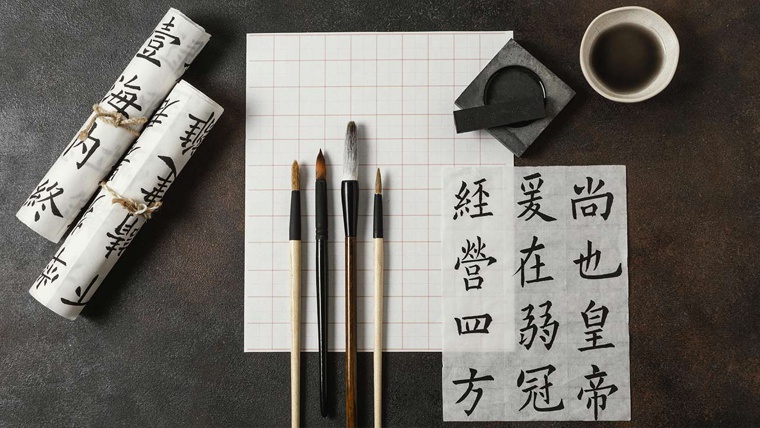 尚也皇帝
爰在弱冠
經營四方
壹海內終